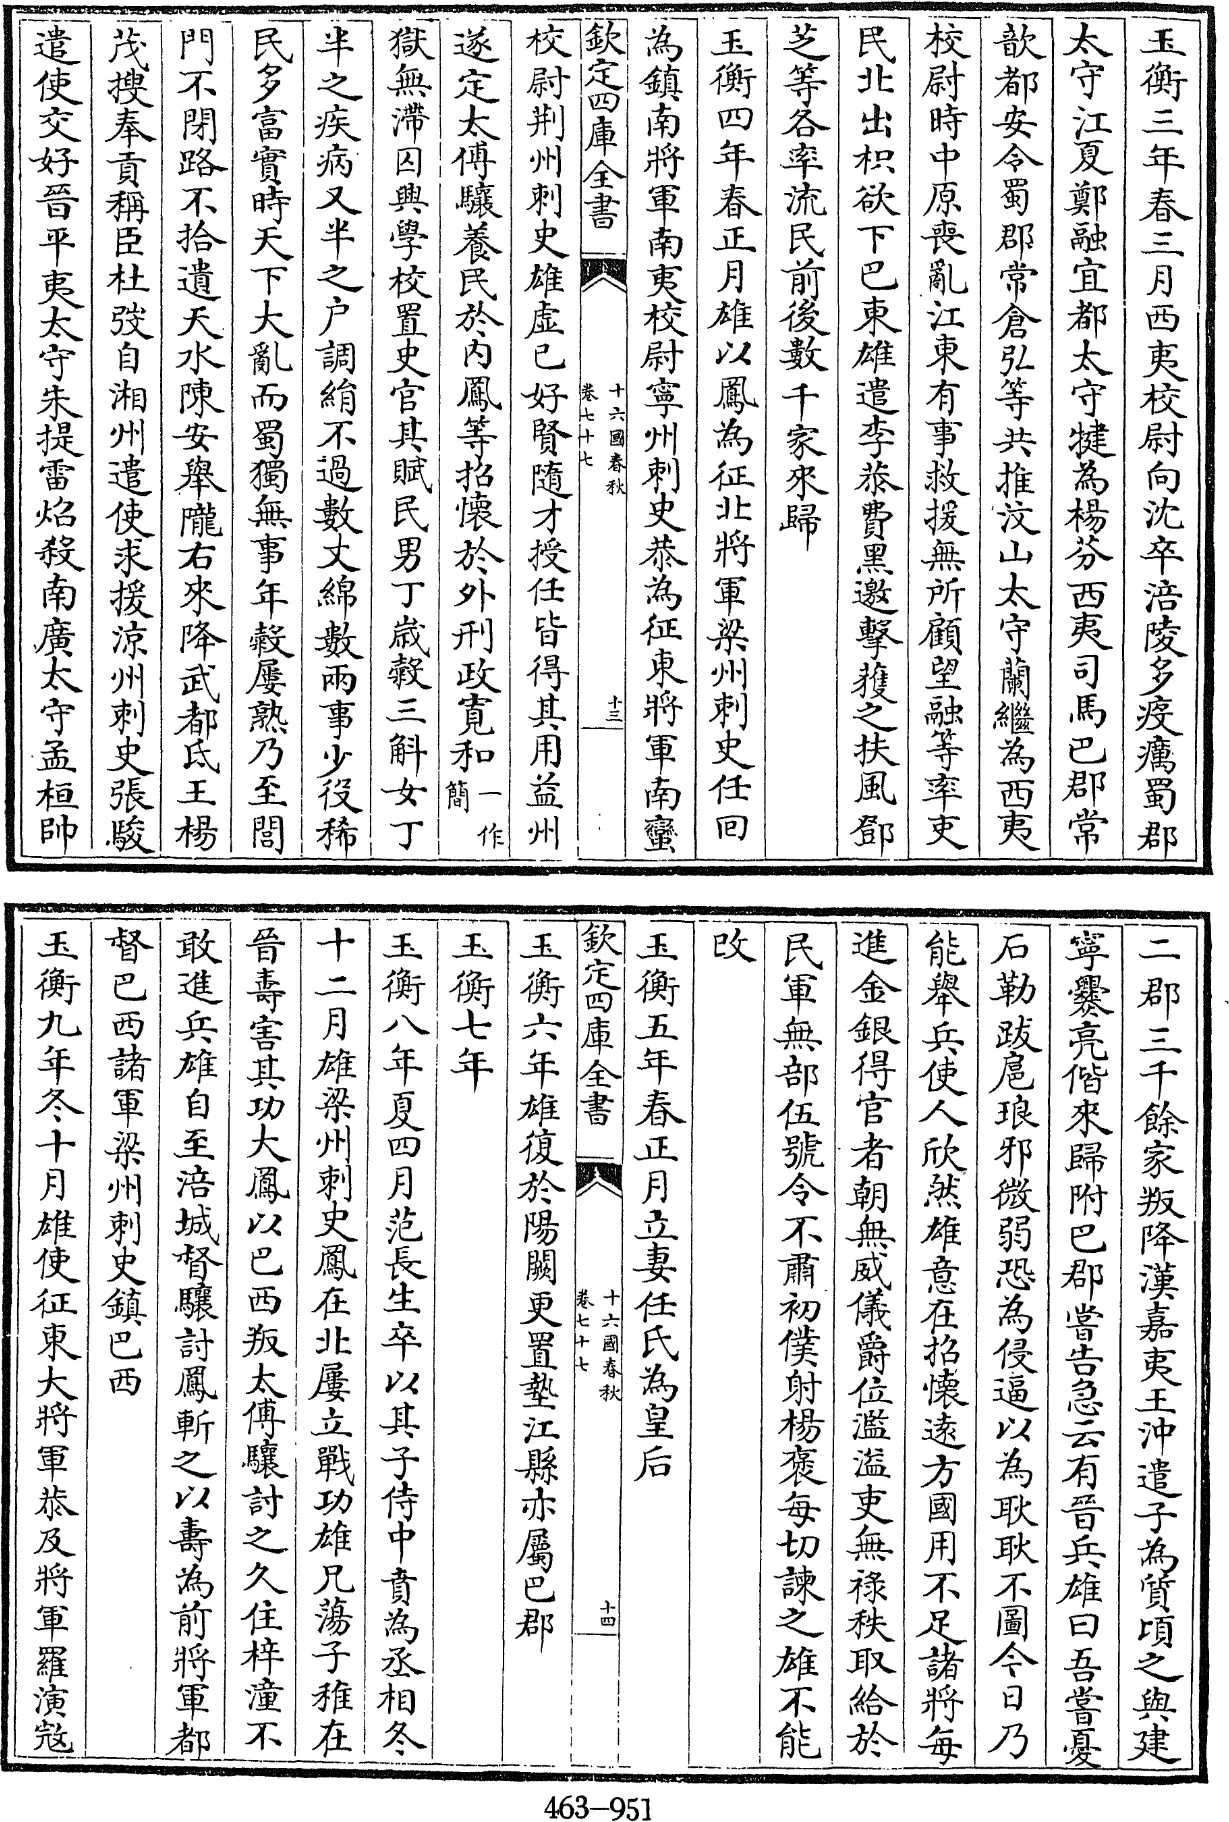 玉衡三年春三月西夷校尉向沈卒涪陵多疫癘蜀郡
太守江夏鄭融宜都太守犍為楊芬西夷司馬巴郡常
歆都安令蜀郡常倉弘等共推汶山太守蘭繼為西夷
校尉時中原喪亂江東有事救援無所顧望融等率吏
民北出枳欲下巴東雄遣李恭費黑邀擊獲之扶風鄧
芝等各率流民前後數千家來歸
玉衡四年春正月雄以鳳為征北將軍梁州刺史任回
為鎮南將軍南夷校尉寧州刺史恭為征東將軍南蠻
欽定四庫全書
十六國春秋
卷七十七
十三
校尉荆州刺史雄虚己好賢隨才授任皆得其用益州
遂定太傅驤養民於内鳳等招懷於外刑政寛和一作簡
獄無滯囚興學校置史官其賦民男丁嵗穀三斛女丁
半之疾病又半之户調絹不過數丈綿數兩事少役稀
民多富實時天下大亂而蜀獨無事年穀屢熟乃至閭
門不閉路不拾遺天水陳安舉隴右來降武都氐王楊
茂搜奉貢稱臣杜弢自湘州遣使求援涼州刺史張駿
遣使交好晉平夷太守朱提雷炤殺南廣太守孟桓帥
二郡三千餘家叛降漢嘉夷王沖遣子為質頃之與建
寧爨亮偕來歸附巴郡嘗告急云有晉兵雄曰吾嘗憂
石勒跋扈琅邪微弱恐為侵逼以為耿耿不圖今日乃
能舉兵使人欣然雄意在招懷遠方國用不足諸將每
進金銀得官者朝無威儀爵位濫溢吏無祿秩取給於
民軍無部伍號令不肅初僕射楊褒每切諫之雄不能
改
玉衡五年春正月立妻任氏為皇后
欽定四庫全書
十六國春秋
卷七十七
十四
玉衡六年雄復於陽關更置墊江縣亦屬巴郡
玉衡七年
玉衡八年夏四月范長生卒以其子侍中賁為丞相冬
十二月雄梁州刺史鳳在北屢立戰功雄兄蕩子稚在
晉壽害其功大鳳以巴西叛太傅驤討之久住梓潼不
敢進兵雄自至涪城督驤討鳳斬之以壽為前將軍都
督巴西諸軍梁州刺史鎮巴西
玉衡九年冬十月雄使征東大將軍恭及將軍羅演寇
463-951